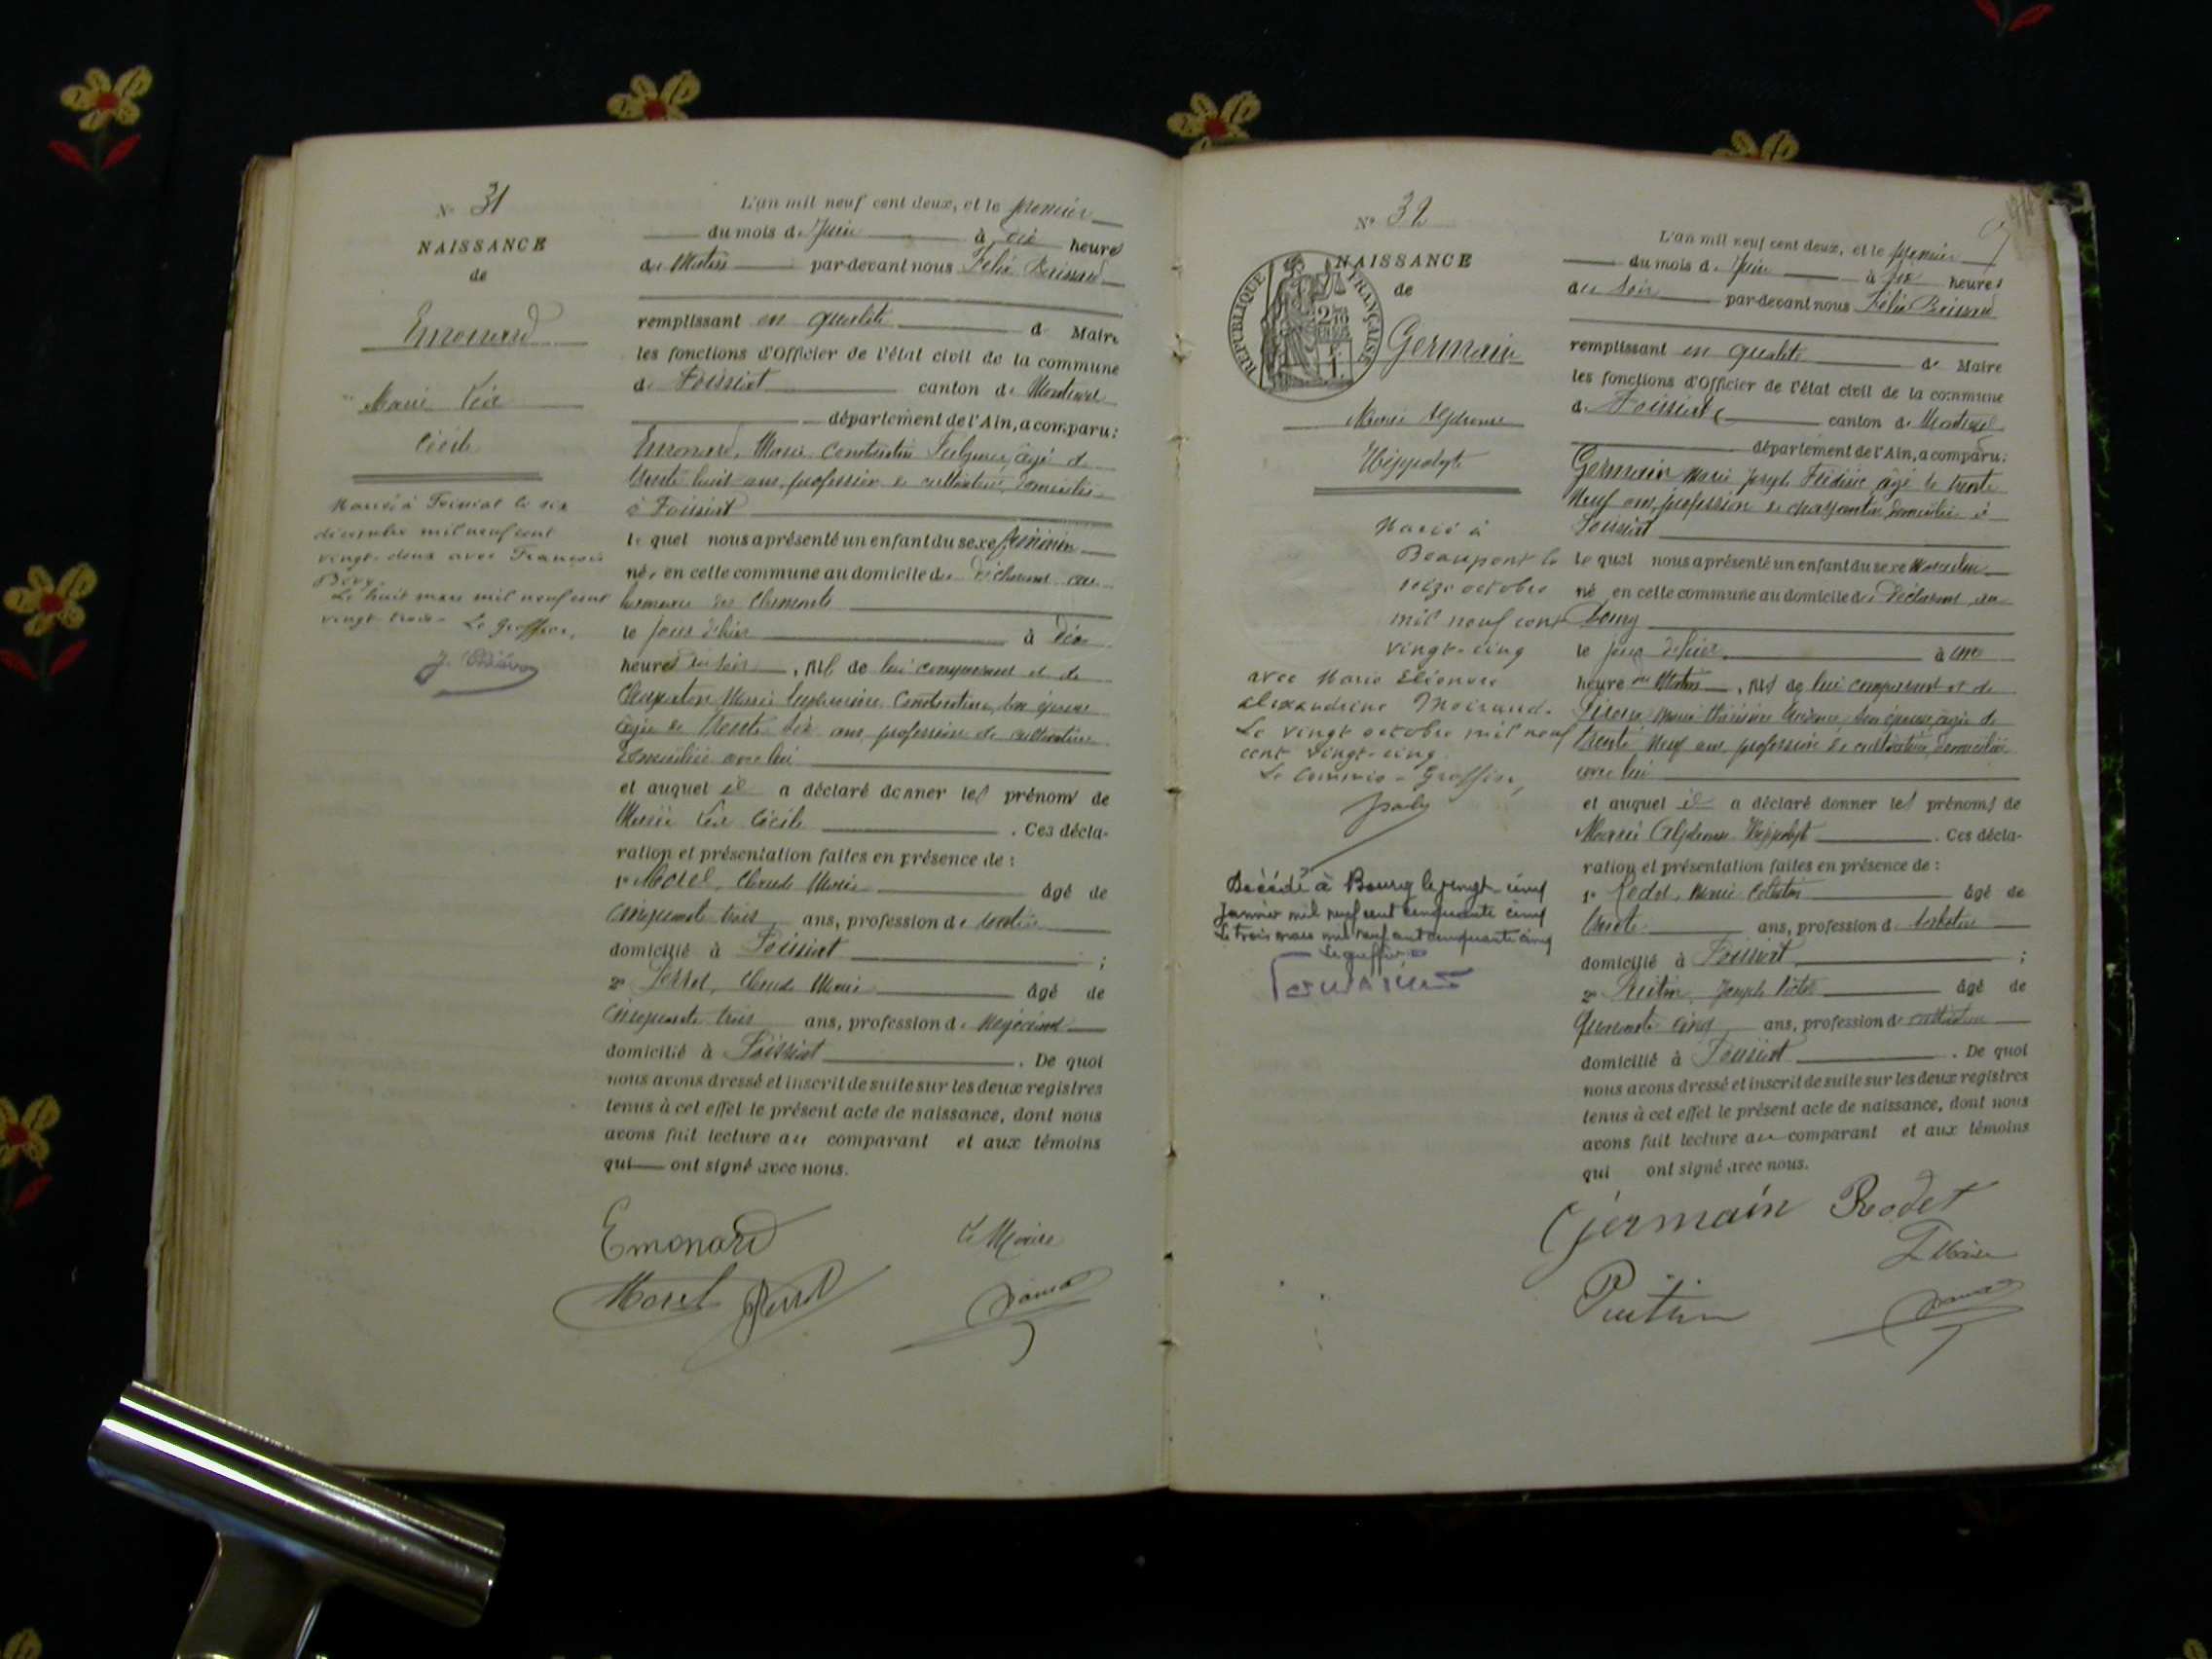 N° 31
NAISSANCE
de
Emonard
Marie Léa
Cécile
Mariée à Foissiat le six
décembre mil neuf cent
vingt-deux avec François
Le huit mars mil neuf cent
vingt trois - Le Greffier,
L'an mil neuf cent deux, et le premier
du mois de Juin à dix heures
du Matin par-devant nous Félix
remplissant en qualité de Maire
les fonctions d'Officier de l'état civil de la commune
de Foissiat canton de Montrevel
département de l'Ain, a comparu:
Emonard, Marie Constantin âgé de
trente huit ans, profession de cultivateur, domicilié
à Foissiat
lequel nous a présenté un enfant du sexe féminin
née en cette commune au domicile du déclarant au
hameau des
le jour d'hier à dix
heures du soir, fille de lui comparant et de
Marie Constantine, son épouse
âgée de trente six ans, profession de cultivatrice
domiciliée avec lui
et auquel il a déclaré donner les prénoms de
Marie Léa Cécile . Ces décla-
ration et présentation faites en présence de :
1° Morel, Claude Marie âgé de
cinquante trois ans, profession de
domicilié à Foissiat ;
2° Perret, Claude Marie âgé de
cinquante trois ans, profession de négociant
domicilié à Foissiat . De quoi
nous avons dressé et inscrit de suite sur les deux registres
tenus à cet effet le présent acte de naissance, dont nous
avons fait lecture au comparant et aux témoins
qui ont signé avec nous.
Emonard Le Maire
Morel Perret
N° 32
RÉPUBLIQUE FRANÇAISE
NAISSANCE
de
Germain
Marie Alphonse
Hippolyte
Marié à
Beaupont le
seize octobre
mil neuf cent
vingt-cinq
avec Marie Eléonore
Alexandrine Moiraud.
Le vingt octobre mil neuf
cent vingt-cinq.
Le Commis-Greffier,
Décédé à Bourg le vingt-cinq
Janvier mil neuf cent cinquante cinq
Le trois mars mil neuf cent cinquante cinq
Le greffier
L'an mil neuf cent deux, et le premier
du mois de Juin à heures
du soir par-devant nous Félix
remplissant en qualité de Maire
les fonctions d'Officier de l'état civil de la commune
de Foissiat canton de Montrevel
département de l'Ain, a comparu:
Germain Marie Joseph Frédéric âgé de trente
neuf ans, profession de charpentier domicilié à
Foissiat
lequel nous a présenté un enfant du sexe masculin
né en cette commune au domicile du déclarant au
le jour d'hier à une
heure du matin, fils de lui comparant et de
Marie son épouse, âgée de
trente neuf ans, profession de cultivatrice, domiciliée
avec lui
et auquel il a déclaré donner les prénoms de
Marie Alphonse Hippolyte . Ces décla-
ration et présentation faites en présence de :
1° Rodet, Marie Célestin âgé de
trente ans, profession de
domicilié à Foissiat ;
2° Puitin, Joseph Victor âgé de
quarante cinq ans, profession de cultivateur
domicilié à Foissiat . De quoi
nous avons dressé et inscrit de suite sur les deux registres
tenus à cet effet le présent acte de naissance, dont nous
avons fait lecture au comparant et aux témoins
qui ont signé avec nous.
Germain Rodet
Le Maire
Puitin